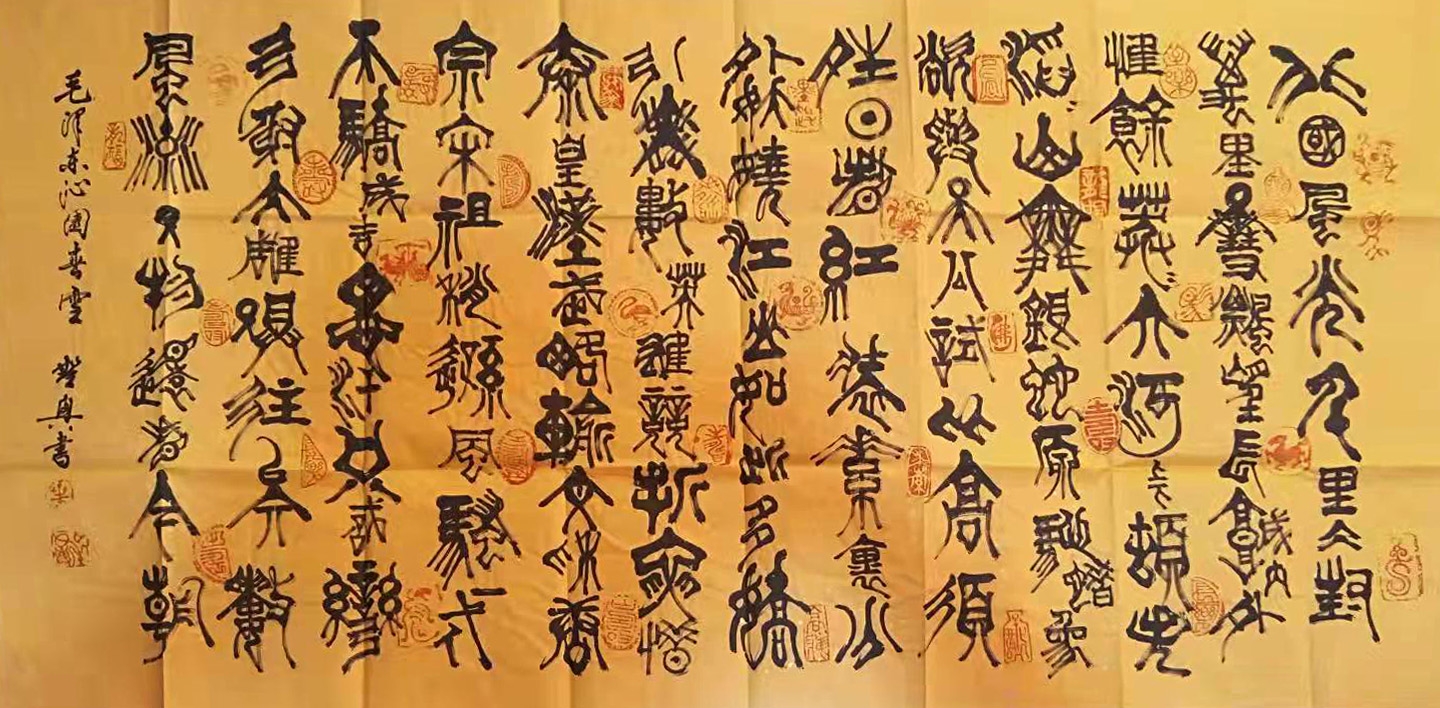 北國風光千里冰封
萬里雪飄望長城內外
惟餘莽〻大河上下頓失
滔〻山舞銀蛇原馳蠟象
欲與天公試比高須
晴日看紅裝素裹分
外妖嬈江山如此多嬌
引無數英雄競折腰惜
秦皇漢武略輸文采唐
宗宋祖稍遜風騷一代
天驕成吉思汗只識彎
弓射大雕俱往矣數
風流人物還看今朝
毛澤東沁園春雪 書